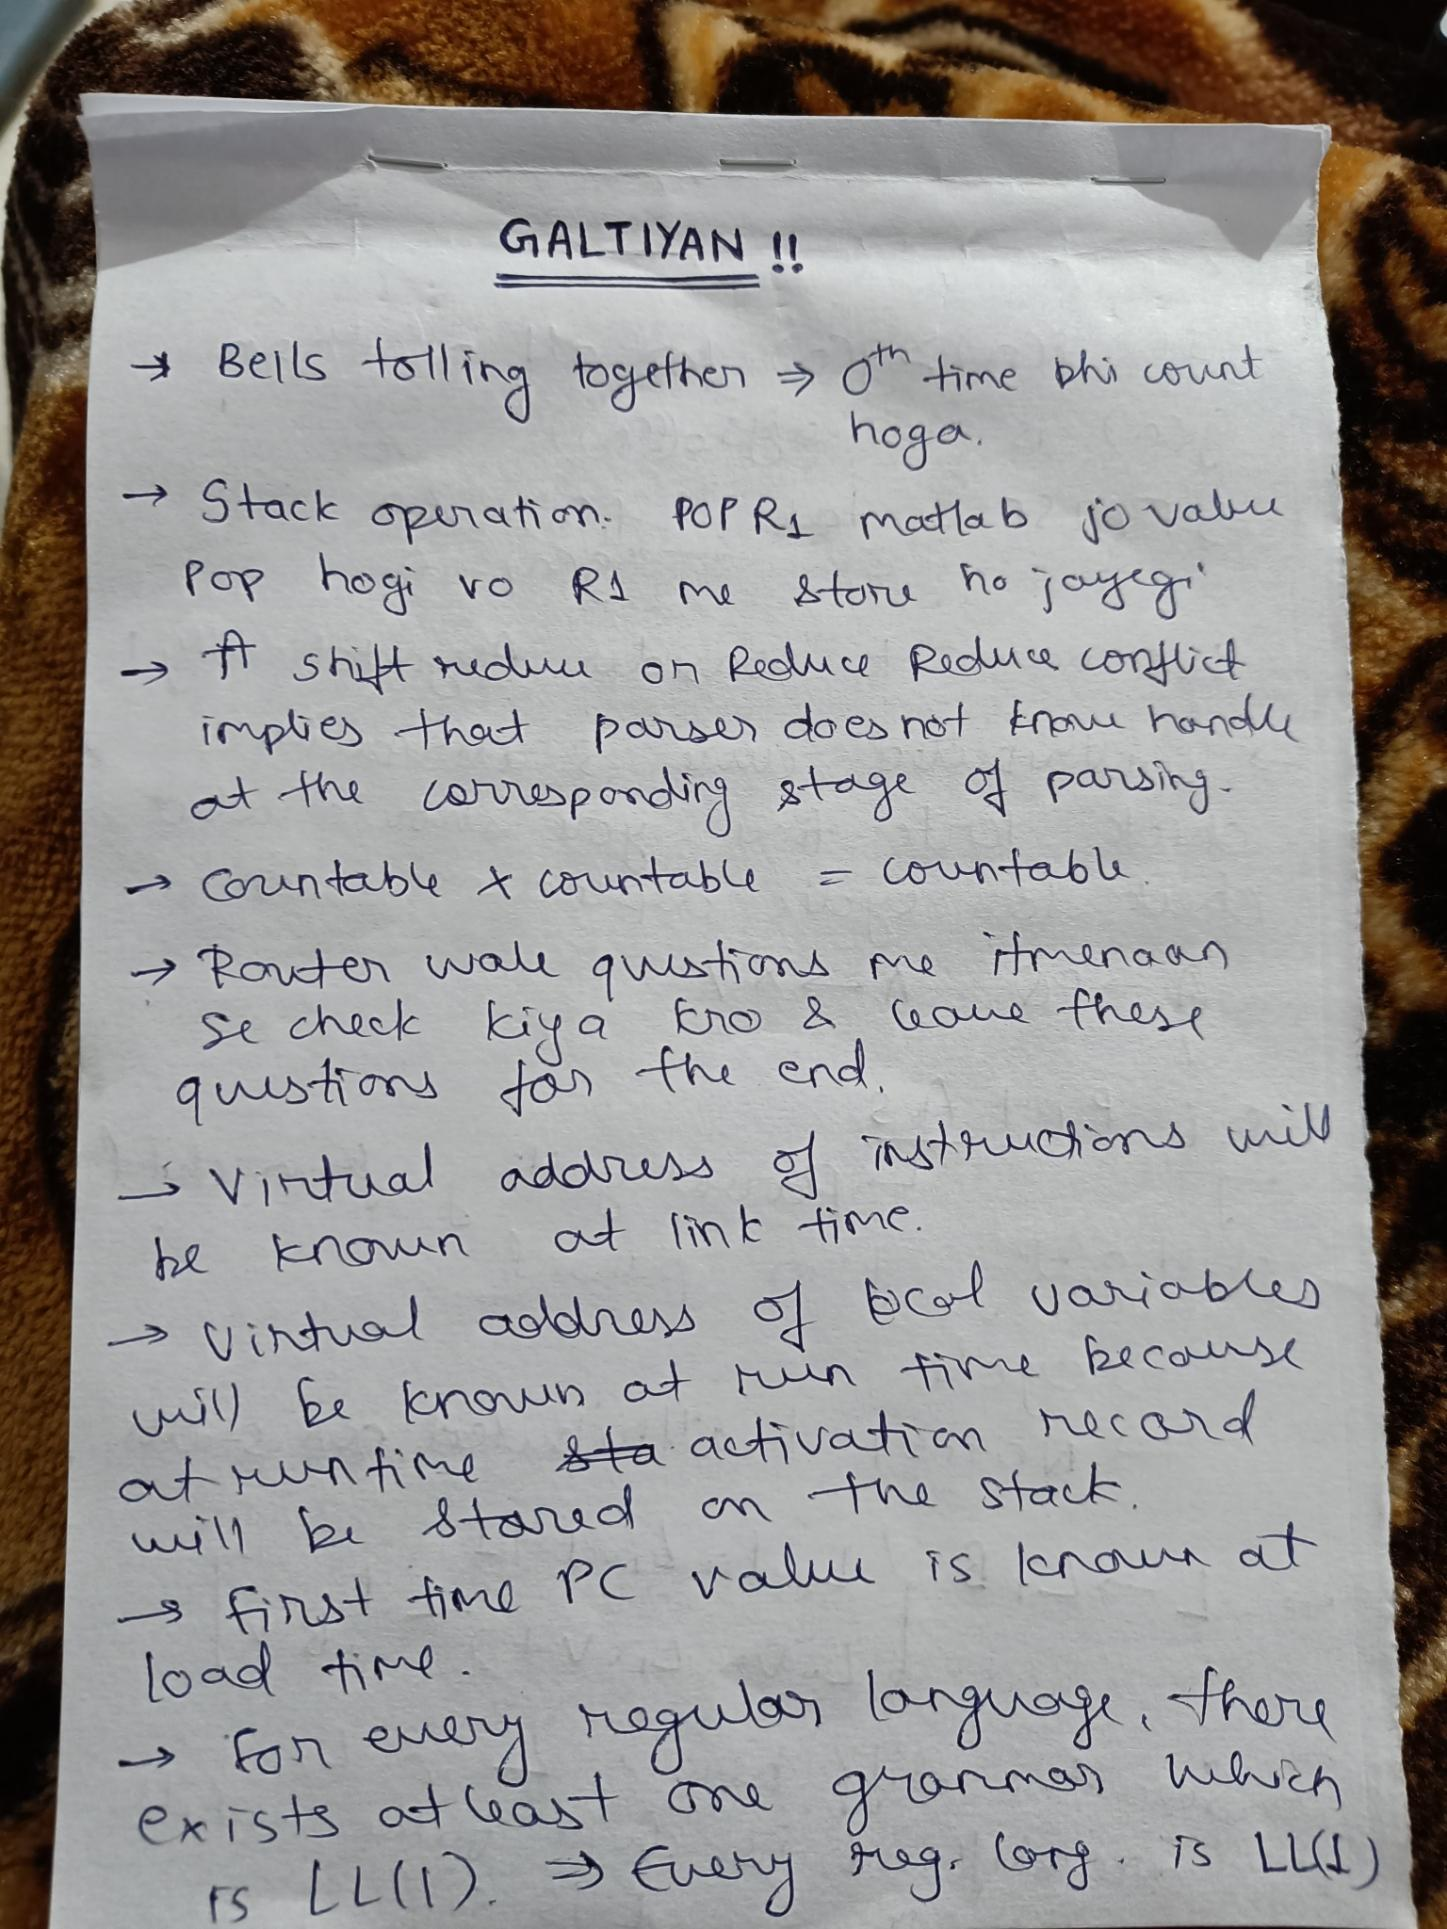 GALTIYAN !!
→ Bells tolling together ⇒ 0th time bhi count
hoga.
→ Stack operation. POP R1 matlab jo value
pop hogi vo R1 me store ho jayegi
→ A shift reduce or Reduce Reduce conflict
implies that parser does not know handle
at the corresponding stage of parsing.
→ Countable x countable = countable.
→ Router wale questions me itmenaan
se check kiya kro & leave these
questions for the end.
→ Virtual address of instructions will
be known at link time.
→ Virtual address of local variables
will be known at run time because
at runtime sta activation record
will be stored on the stack.
→ first time PC value is known at
load time.
→ for every regular language, there
exists at least one grammar which
is LL(1). ⇒ Every reg. lang. is LL(1)